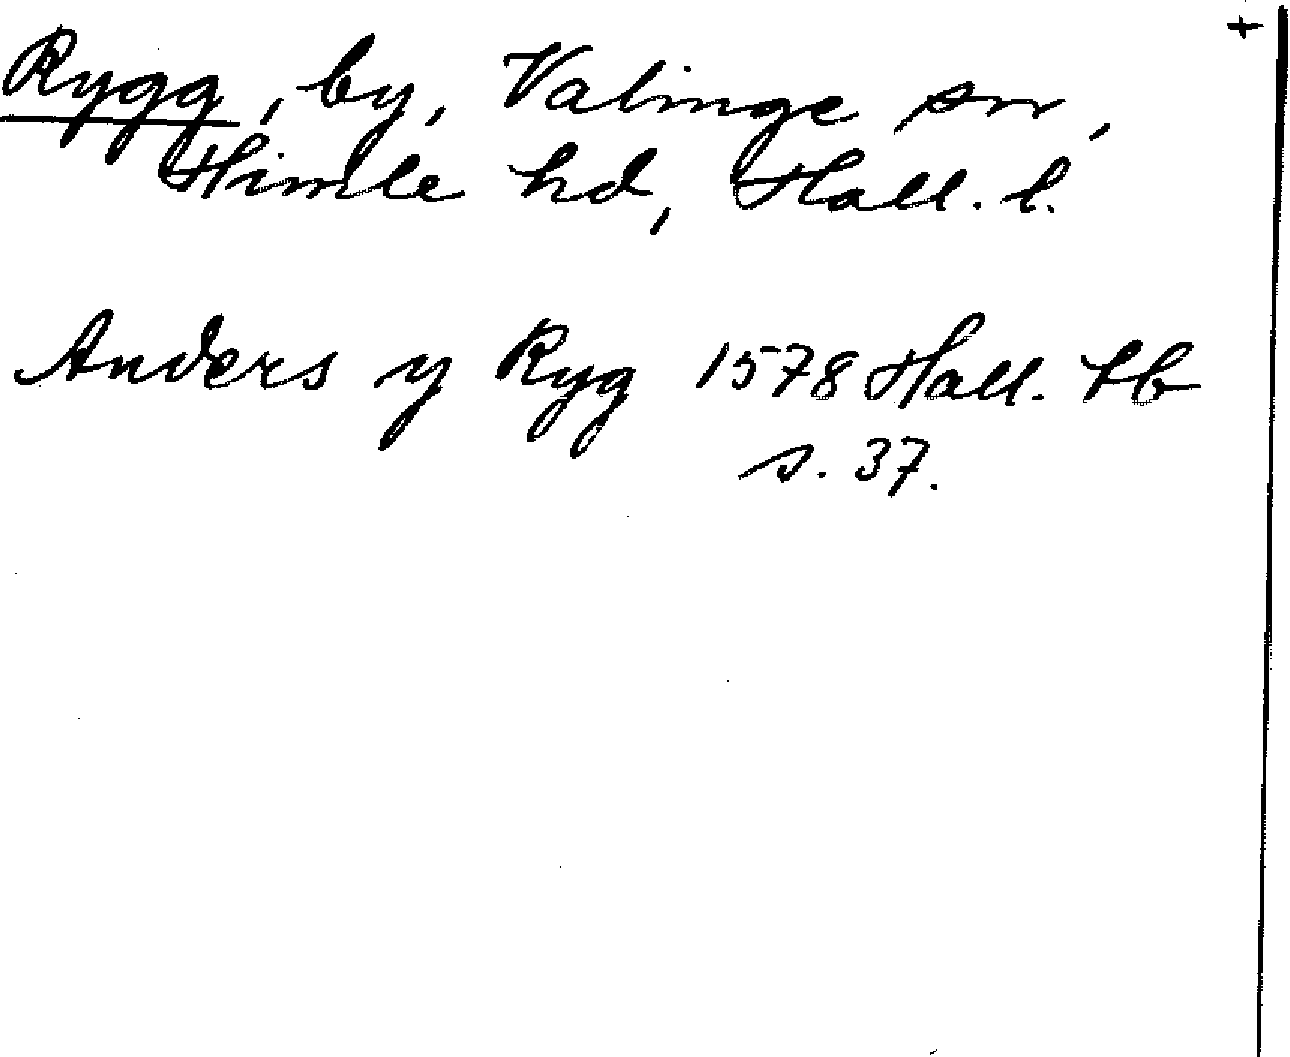 +
Rygg, by, Valinge sn,
Himle hd, Hall. l.
Anders y Ryg 1578 Hall. Lb
s. 37.